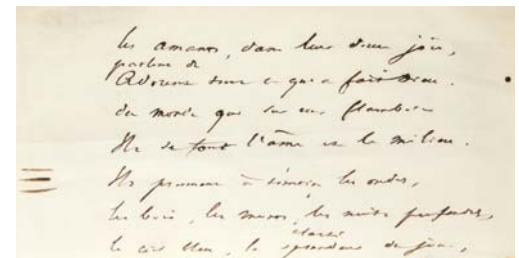 les amants, dans leur
parlent de
Adorent tout ce qui a fait Dieu.
du monde que sur eux
Ils se font l'âme et le milieu.
Ils prennent à témoin les ondes,
les bois, les nuits profondes,
clarté
le ciel bleu, la splendeur du jour,